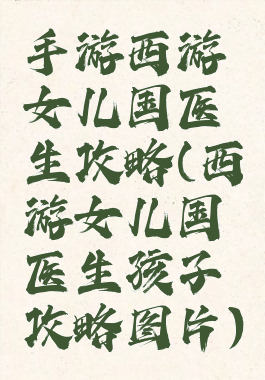 手游西游
女儿国医
生攻略(西
游女儿国
医生孩子
攻略图片)